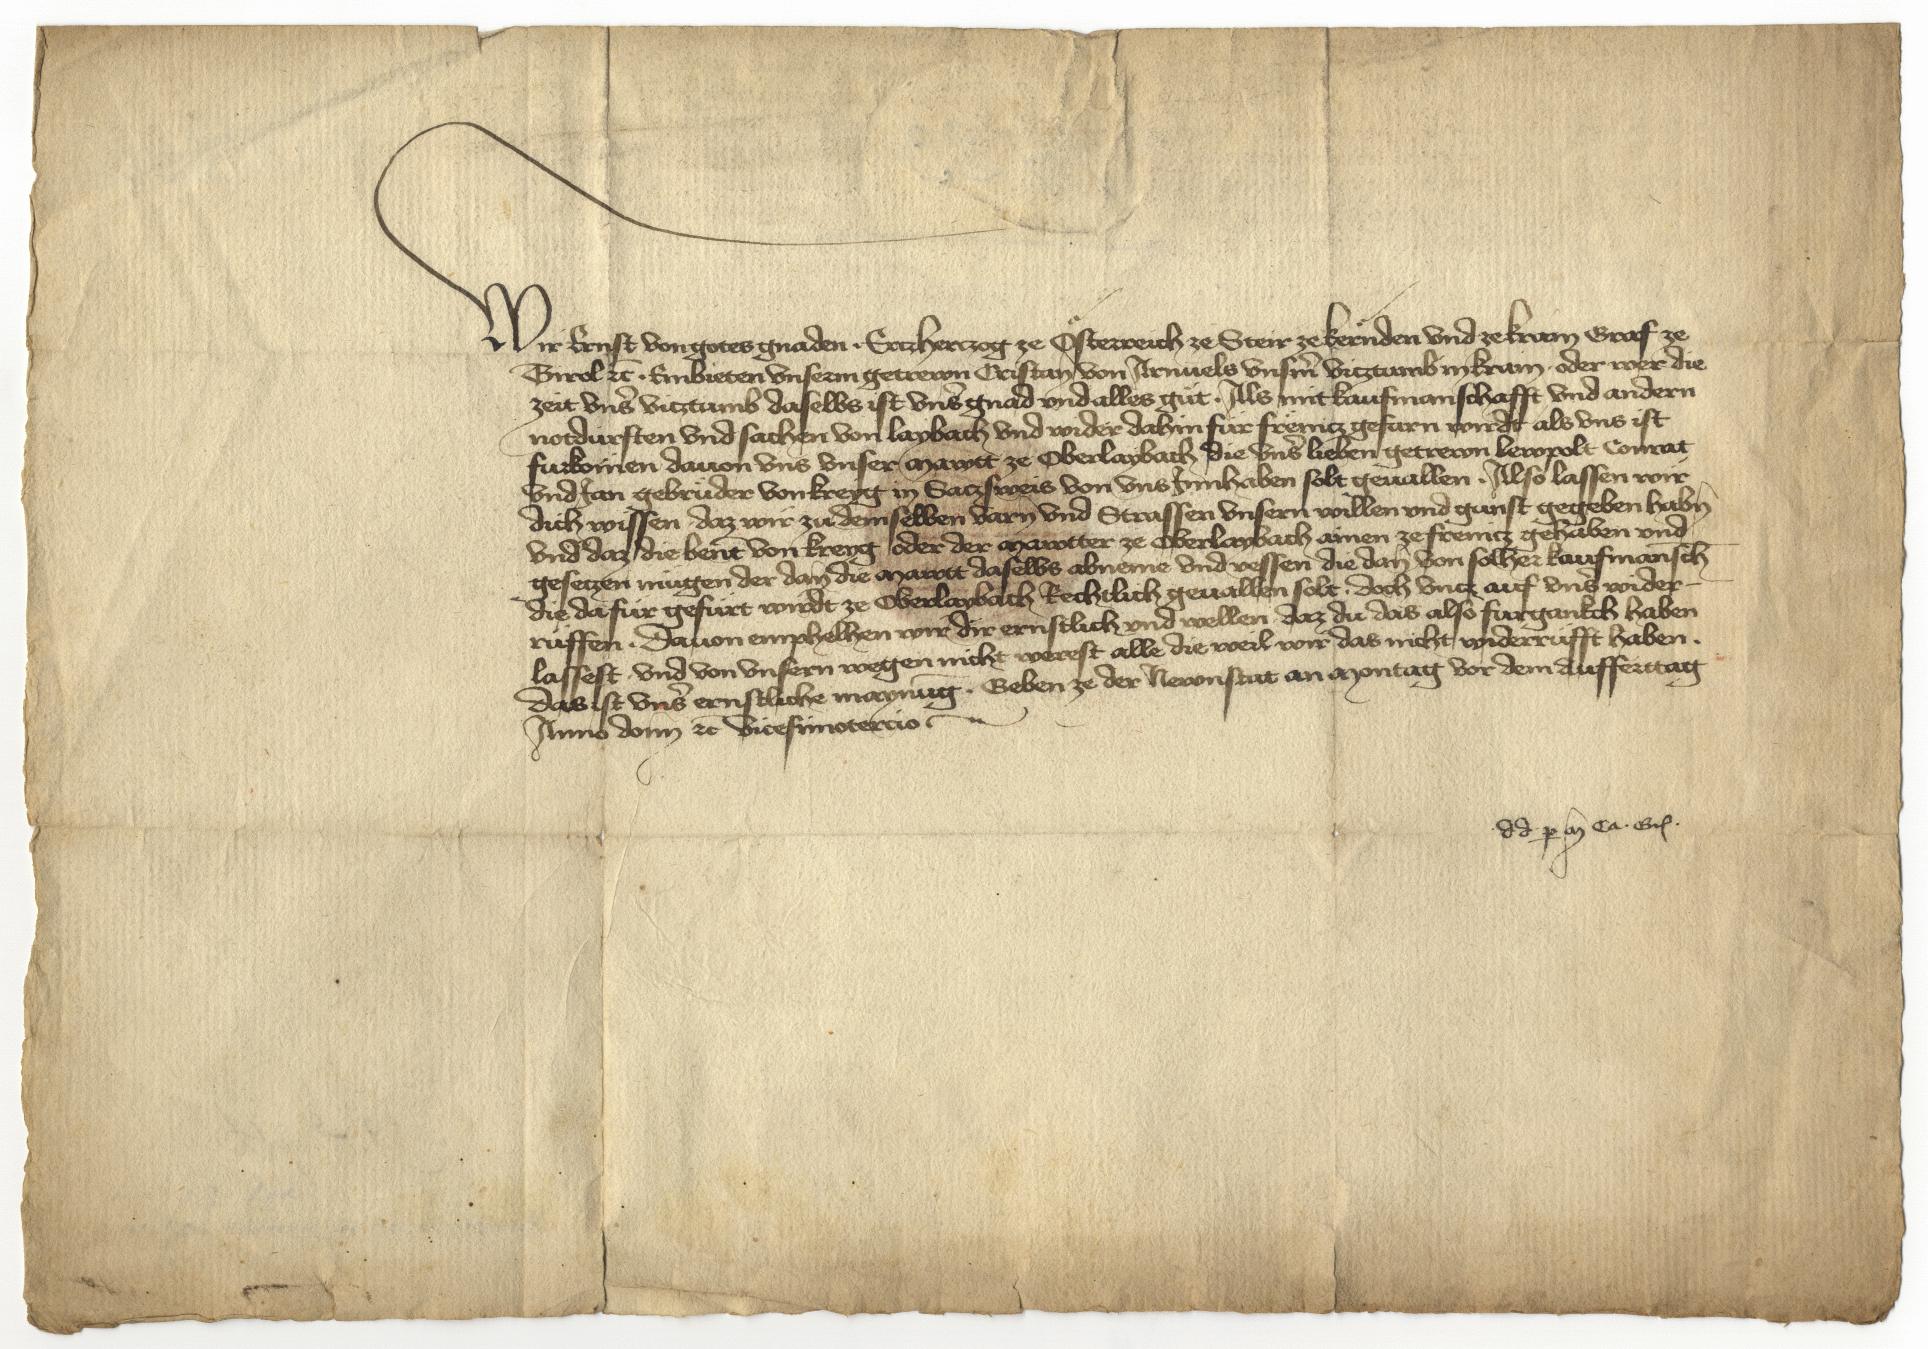 Wir Ernst von gotes gnaden · Erczherczog ze Österreich ze Steir ze kernden vnd ze krain Graf ze
Tirol ꝛc · Embieten vnserm getrewn Cristan von vnserm vicztumb in krain · oder wer die
zeit vnser vicztumb daselbs ist vnser gnad vnd alles gůt · Als mit kaufmanschafft vnd andern
notdurfften vnd sachen von laybach vnd wider dahin für fremitz gefarn wirdt als vns ist
furkomen dauon vns vnser mawtt ze Oberlaybach die vnser lieben getrewn lewpolt Conrat
vnd Jan gebrüder von kreyg in Saczsweis von vns Innhaben solt geuallen · Also lassen wir
dich wissen daz wir zu demselben varn vnd Strassen vnsern willen vnd gunst gegeben habn
vnd daz die bent von kreyg oder der mawtter ze Oberlaybach ainen ze fremitz gehaben vnd
gesetzen mügen der dan die mawtt daselbs abneme vnd vessen die dan von solher kaufmansch
die dafur gefürt wirdt ze Oberlaybach Rechtlich geuallen solt · doch vncz auf vns wider-
rüffen · Dauon emphelhen wir dir ernstlich vnd wellen daz du das also furgankch haben
lassest · vnd von vnsern wegen nicht werest alle die weil wir das nicht widerrüfft haben ·
das ist vnser ernstliche maynung · Geben ze der Newnstat an Montag vor dem Auffertag
Anno domini ꝛc vicesimotercio